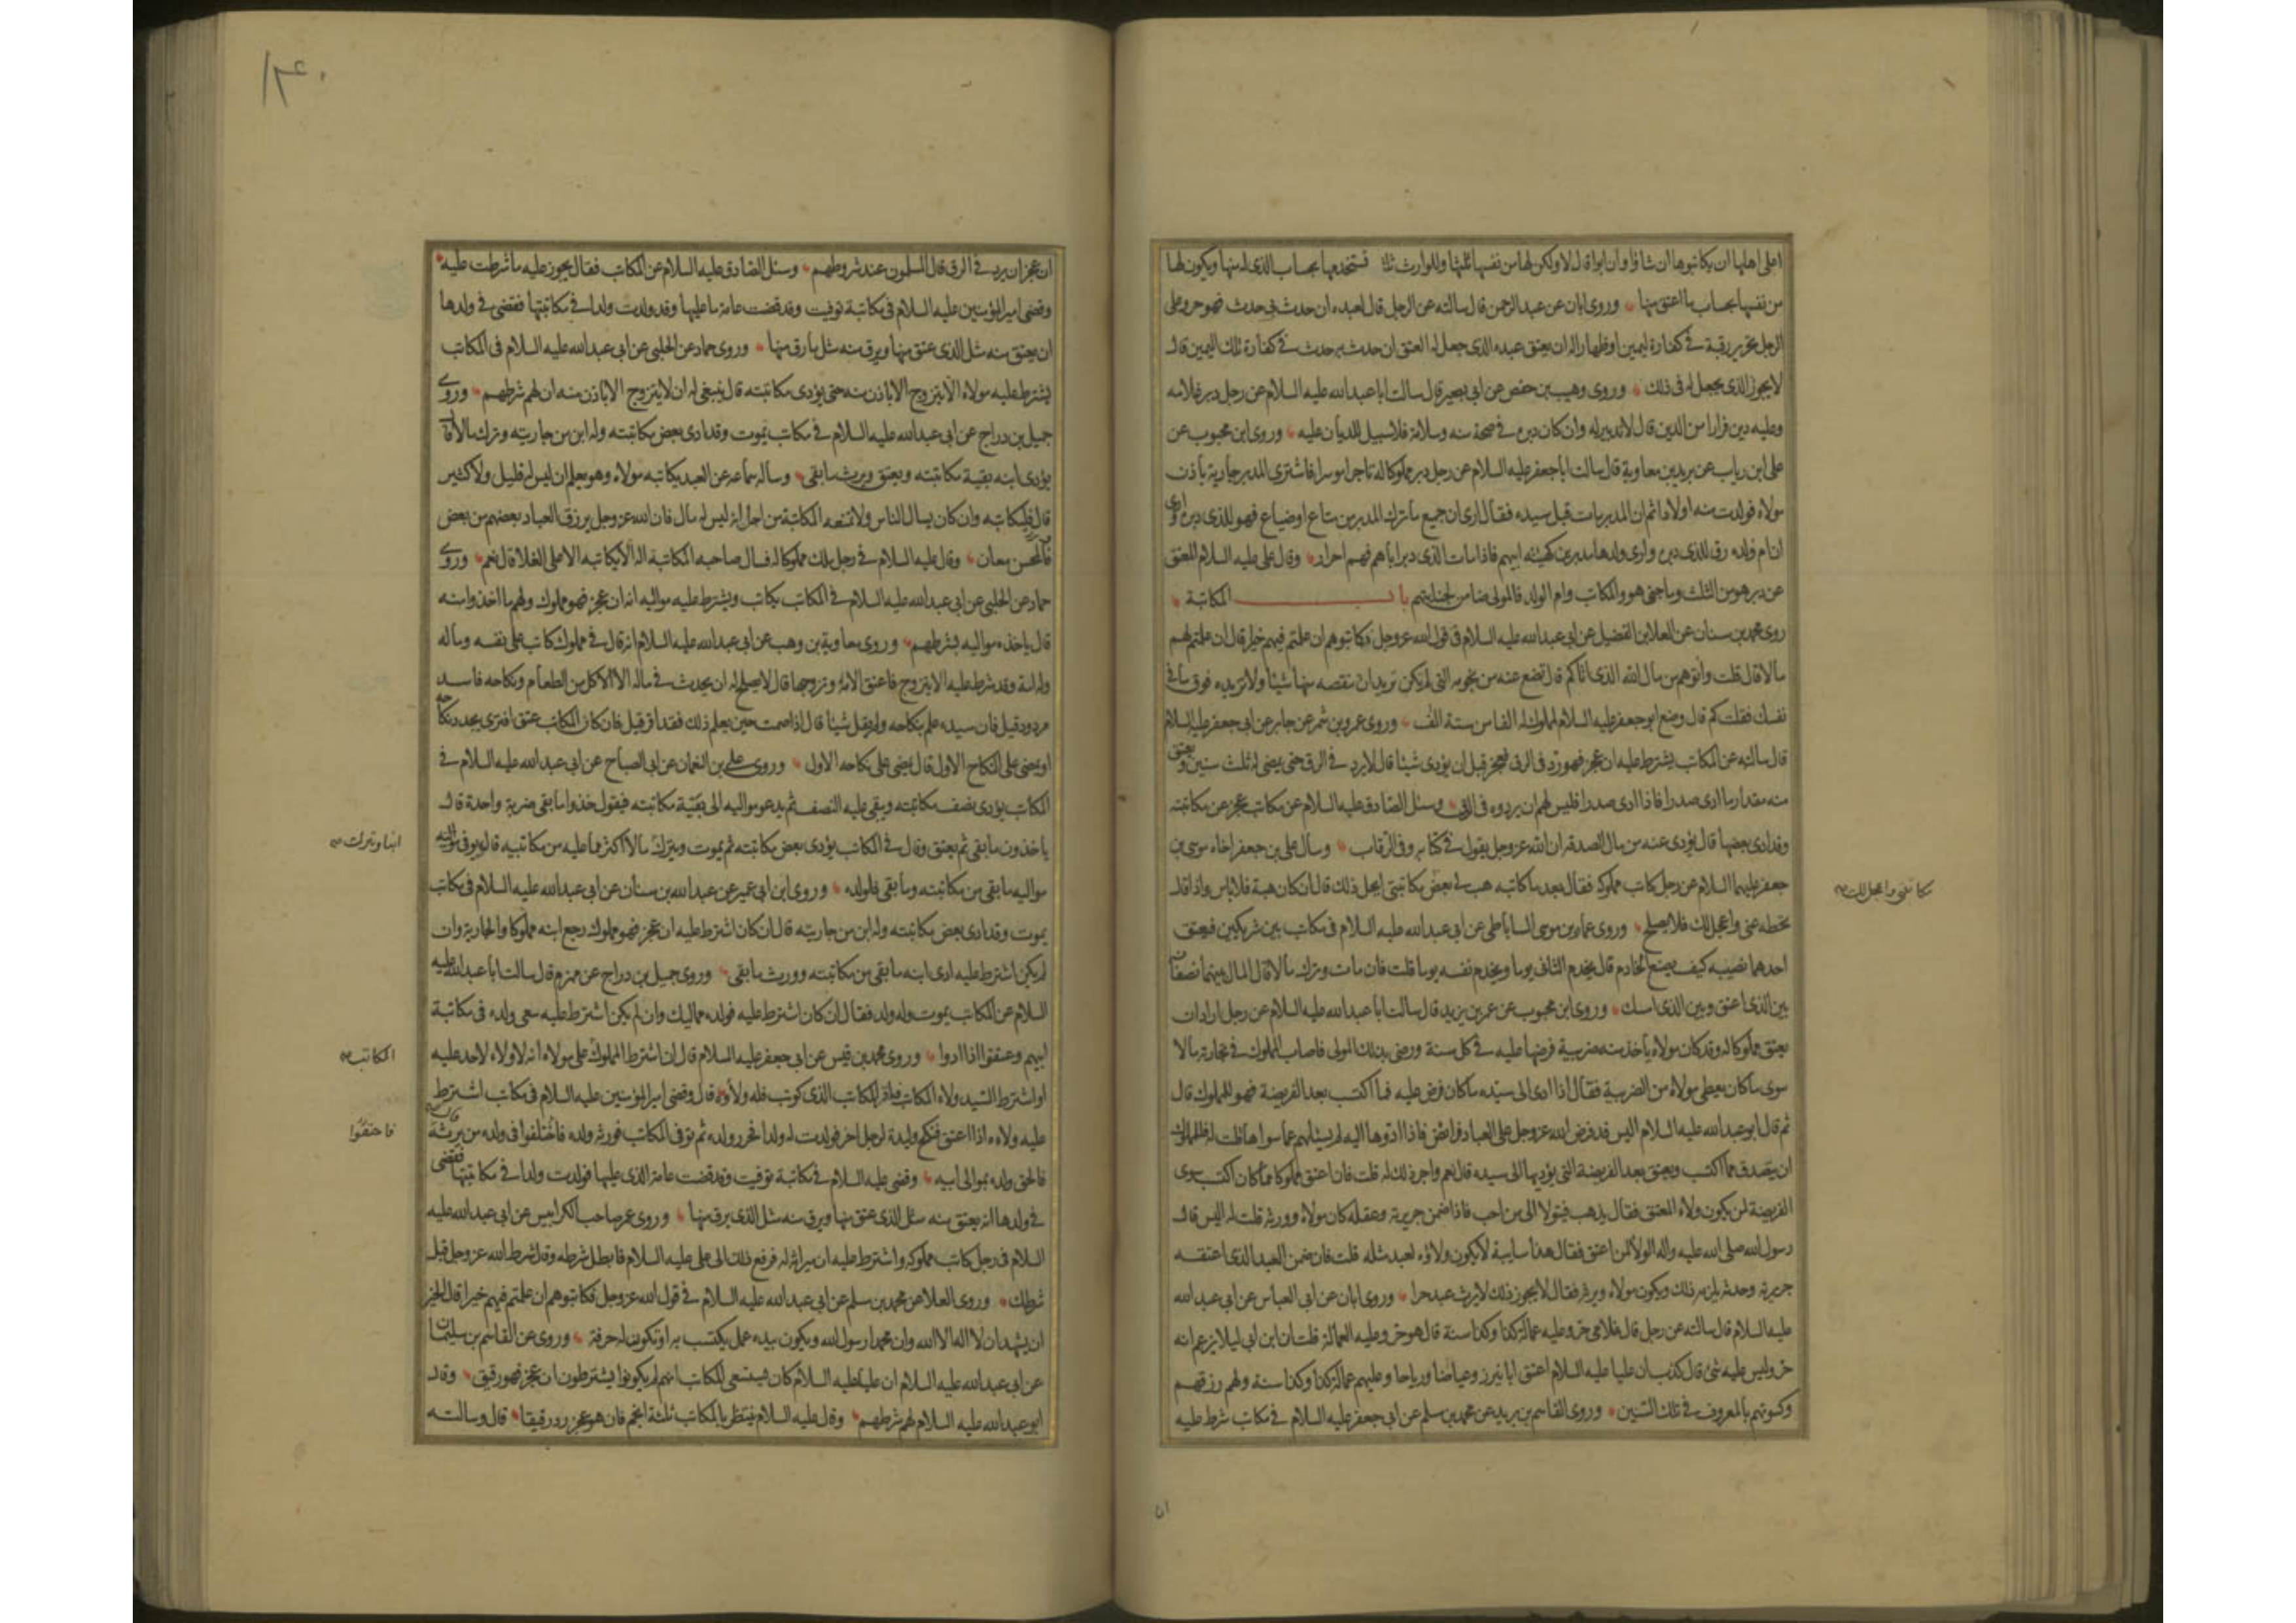 اعلى اهلها ان يكاتبوها ان شاؤا وان ابوا قال لا ولكن لها من نفسها ثلثها وللوارث ثلثا فستخدمها بحساب الذى له منها ويكون لها
من نفسها بحساب ما اعتق منها وروى ابان عن عبد الرحمن قال سالته عن الرجل قال لعبده ان حدث بى حدث فهو حر وعلى
الرجل تحرير رقبة فى كفارة يمين او ظهار اله ان يعتق عبده الذى جعل له العتق ان حدث به حدث فى كفارة تلك اليمين قال
لا يجوز الذى يجعل له فى ذلك وروى وهيب بن حفص عن ابى بصير قال سالت ابا عبد الله عليه السلام عن رجل دبر غلامه
وعليه دين فرارا من الدين قال لا تدبير له وان كان دبره فى صحة منه وسلامة فلا سبيل للديان عليه وروى ابن محبوب عن
على ابن رياب عن بريد بن معاوية قال سالت ابا جعفر عليه السلام عن رجل دبر مملوكا له تاجرا موسرا فاشترى المدبر جارية باذن
مولاه فولدت منه اولادا ثم ان المدبر مات قبل سيده فقال ارى ان جميع ما ترك المدبر من متاع او ضياع فهو للذى دبره وارى
ان ام ولده رق للذى دبره وارى ولدها مدبرين كهيئة ابيهم فاذا مات الذى دبر اباهم فهم احرار وقال على عليه السلام المعتق
عن دبر هو من الثلث وما جنى هو والمكاتب وام الولد فالمولى ضامن لجنايتهم باب المكاتبة
روى محمد بن سنان عن العلا بن الفضيل عن ابى عبد الله عليه السلام فى قول الله عز وجل فكاتبوهم ان علمتم فيهم خيرا قال ان علمتم لهم
مالا قال قلت واتوهم من مال الله الذى اتاكم قال تضع عنه من نجومه التى لم يكن تريد ان تنقصه منها شيئا ولا تزيده فوق ما فى
نفسك فقلت كم قال وضع ابو جعفر عليه السلام لمملوكه الفا من ستة الف وروى عمرو بن شمر عن جابر عن ابى جعفر عليه السلام
قال سالته عن المكاتب يشترط عليه ان عجز فهو رد فى الرق فعجز قبل ان يؤدى شيئا قال لا يرد فى الرق حتى يمضى له ثلث سنين ويعتق
منه مقدار ما ادى صدرا فاذا ادى صدرا فليس لهم ان يردوه فى الرق وسئل الصادق عليه السلام عن مكاتب عجز عن مكاتبته
وقد ادى بعضها قال يؤدى عنه من مال الصدقة ان الله عز وجل يقول فى كتابه وفى الرقاب وسأل على بن جعفر اخاه موسى بن
جعفر عليهما السلام عن رجل كاتب مملوكه فقال بعد ما كاتبه هب لى بعض مكاتبتى ايحل ذلك قال ان كان هبة فلا باس واذا قال
تحطه عنى واعجل لك فلا يصلح وروى عمار بن موسى الساباطى عن ابى عبد الله عليه السلام فى مكاتب بين شريكين فيعتق
احدهما نصيبه كيف يصنع الخادم قال يخدم الثانى يوما ويخدم نفسه يوما قلت فان مات وترك مالا قال المال بينهما نصفان
بين الذى اعتق وبين الذى امسك وروى ابن محبوب عن عمر بن يزيد قال سالت ابا عبد الله عليه السلام عن رجل اراد ان
يعتق مملوكا له وقد كان مولاه ياخذ منه ضريبة فرضها عليه فى كل سنة ورضى بذلك المولى فاصاب المملوك فى تجارته مالا
سوى ما كان يعطى مولاه من الضريبة فقال اذا ادى الى سيده ما كان فرض عليه فما اكتسب بعد الفريضة فهو للمملوك قال
ثم قال ابو عبد الله عليه السلام اليس قد فرض الله عز وجل على العباد فرائض فاذا ادوها اليه لم يسئلهم عما سواها قلت له فللمملوك
ان يتصدق مما اكتسب ويعتق بعد الفريضة التى يؤديها الى سيده قال نعم واجر ذلك له قلت فان اعتق مملوكا مما كان اكتسب سوى
الفريضة لمن يكون ولاء المعتق فقال يذهب فيتولا الى من احب فاذا ضمن جريرته وعقله كان مولاه وورثه قلت له اليس قال
رسول الله صلى الله عليه واله الولا لمن اعتق فقال هذا سايبة لا يكون ولاؤه لعبد مثله قلت فان ضمن العبد الذى اعتقه
جريرته وحدثه يلزمه ذلك ويكون مولاه ويرثه فقال لا يجوز ذلك لا يرث عبد حرا وروى ابان عن ابى العباس عن ابى عبد الله
عليه السلام قال سالته عن رجل قال غلامى حر وعليه عمالة كذا وكذا سنة قال هو حر وعليه العمالة قلت ان ابن ابى ليلا يزعم انه
حر وليس عليه شئ قال كذب ان عليا عليه السلام اعتق ابا نيرز وعياضا ورياحا وعليهم عمالة كذا وكذا سنة ولهم رزقهم
وكسوتهم بالمعروف فى تلك السنين وروى القاسم بن بريد عن محمد بن مسلم عن ابى جعفر عليه السلام فى مكاتب شرط عليه
مكاتبتى واعجل لك
ان
١٣٤٠
ان عجز ان يرد فى الرق قال المسلمون عند شروطهم وسئل الصادق عليه السلام عن المكاتب فقال يجوز عليه ما شرطت عليه
وقضى امير المؤمنين عليه السلام فى مكاتبة توفيت وقد قضت عامة ما عليها وقد ولدت ولدا فى مكاتبتها فقضى فى ولدها
ان يعتق منه مثل الذى عتق منها ويرق منه مثل ما رق منها وروى حماد عن الحلبى عن ابى عبد الله عليه السلام فى المكاتب
يشترط عليه مولاه الا يتزوج الا باذن منه حتى يؤدى مكاتبته قال ينبغى له ان لا يتزوج الا باذن منه ان لهم شرطهم وروى
جميل بن دراج عن ابى عبد الله عليه السلام فى مكاتب يموت وقد ادى بعض مكاتبته وله ابن من جاريته وترك مالا قال
يؤدى ابنه بقية مكاتبته ويعتق ويرث ما بقى وساله سماعه عن العبد يكاتبه مولاه وهو يعلم ان ليس له قليل ولا كثير
قال فليكاتبه وان كان يسال الناس ولا تمنعه المكاتبة من اجل انه ليس له مال فان الله عز وجل يرزق العباد بعضهم من بعض
فالمحسن معان وقال عليه السلام فى رجل ملك مملوكا له فسال صاحبه المكاتبة اله الا يكاتبه الا على الغلا قال نعم وروى
حماد عن الحلبى عن ابى عبد الله عليه السلام فى المكاتب يكاتب ويشترط عليه مواليه انه ان عجز فهو مملوك ولهم ما اخذوا منه
قال ياخذه مواليه بشرطهم وروى معاوية بن وهب عن ابى عبد الله عليه السلام انه قال فى مملوك كاتب على نفسه وماله
وله امة وقد شرط عليه الا يتزوج فاعتق الامة وتزوجها قال لا يصلح له ان يحدث فى ماله الا الاكل من الطعام ونكاحه فاسد
مردود قيل فان سيده علم بنكاحه ولم يقل شيئا قال اذا صمت حين يعلم ذلك فقد اقر قيل فان كان المكاتب عتق افترى يجدد نكاحه
او يمضى على النكاح الاول قال يمضى على نكاحه الاول وروى على بن النعمان عن ابى الصباح عن ابى عبد الله عليه السلام فى
المكاتب يؤدى نصف مكاتبته ويبقى عليه النصف ثم يدعو مواليه الى بقية مكاتبته فيقول خذوا ما بقى ضربة واحدة قال
ياخذون ما بقى ثم يعتق وقال فى المكاتب يؤدى بعض مكاتبته ثم يموت ويترك مالا اكثر مما عليه من مكاتبيه قال يوفى
مواليه ما بقى من مكاتبته وما بقى فلولده وروى ابن ابى عمير عن عبد الله بن سنان عن ابى عبد الله عليه السلام فى مكاتب
يموت وقد ادى بعض مكاتبته وله ابن من جاريته قال ان كان اشترط عليه ان عجز فهو مملوك رجع ابنه مملوكا والجارية وان
لم يكن اشترط عليه ادى ابنه ما بقى من مكاتبته وورث ما بقى وروى جميل بن دراج عن مهزم قال سالت ابا عبد الله عليه
السلام عن المكاتب يموت وله ولد فقال ان كان اشترط عليه فولده مماليك وان لم يكن اشترط عليه سعى ولده فى مكاتبة
ابيهم وعتقوا اذا ادوا وروى محمد بن قيس عن ابى جعفر عليه السلام قال ان اشترط المملوك على مولاه انه لا ولاء لاحد عليه
او اشترط السيد ولاء المكاتب فاقر المكاتب الذى كوتب فله ولاؤه قال وقضى امير المؤمنين عليه السلام فى مكاتب اشترط
عليه ولاءه اذا اعتق فنكح وليدة لرجل اخر فولدت له ولدا فحرر ولده ثم توفى المكاتب فورثه ولده فاختلفوا فى ولده من يرثه قال
فالحق ولده بموالى ابيه وقضى عليه السلام فى مكاتبة توفيت وقد قضت عامة الذى عليها فولدت ولدا فى مكاتبتها فقضى
فى ولدها انه يعتق منه مثل الذى عتق منها ويرق منه مثل الذى يرق منها وروى عمر صاحب الكرابيس عن ابى عبد الله عليه
السلام فى رجل كاتب مملوكه واشترط عليه ان ميراثه له فرفع ذلك الى على عليه السلام فابطل شرطه وقال شرط الله عز وجل قبل
شرطك وروى العلا عن محمد بن مسلم عن ابى عبد الله عليه السلام فى قول الله عز وجل فكاتبوهم ان علمتم فيهم خيرا قال الخير
ان يشهد ان لا اله الا الله وان محمدا رسول الله ويكون بيده عمل يكتسب به او تكون له حرفة وروى عن القاسم بن سليمان
عن ابى عبد الله عليه السلام ان عليا عليه السلام كان يستسعى المكاتب انهم لم يكونوا يشترطون ان عجز فهو رقيق وقال
ابو عبد الله عليه السلام لهم شرطهم وقال عليه السلام ينتظر بالمكاتب ثلثة انجم فان هو عجز رد رقيقا قال وسالته
ابنا وترك
المكاتب
فاحتقوا